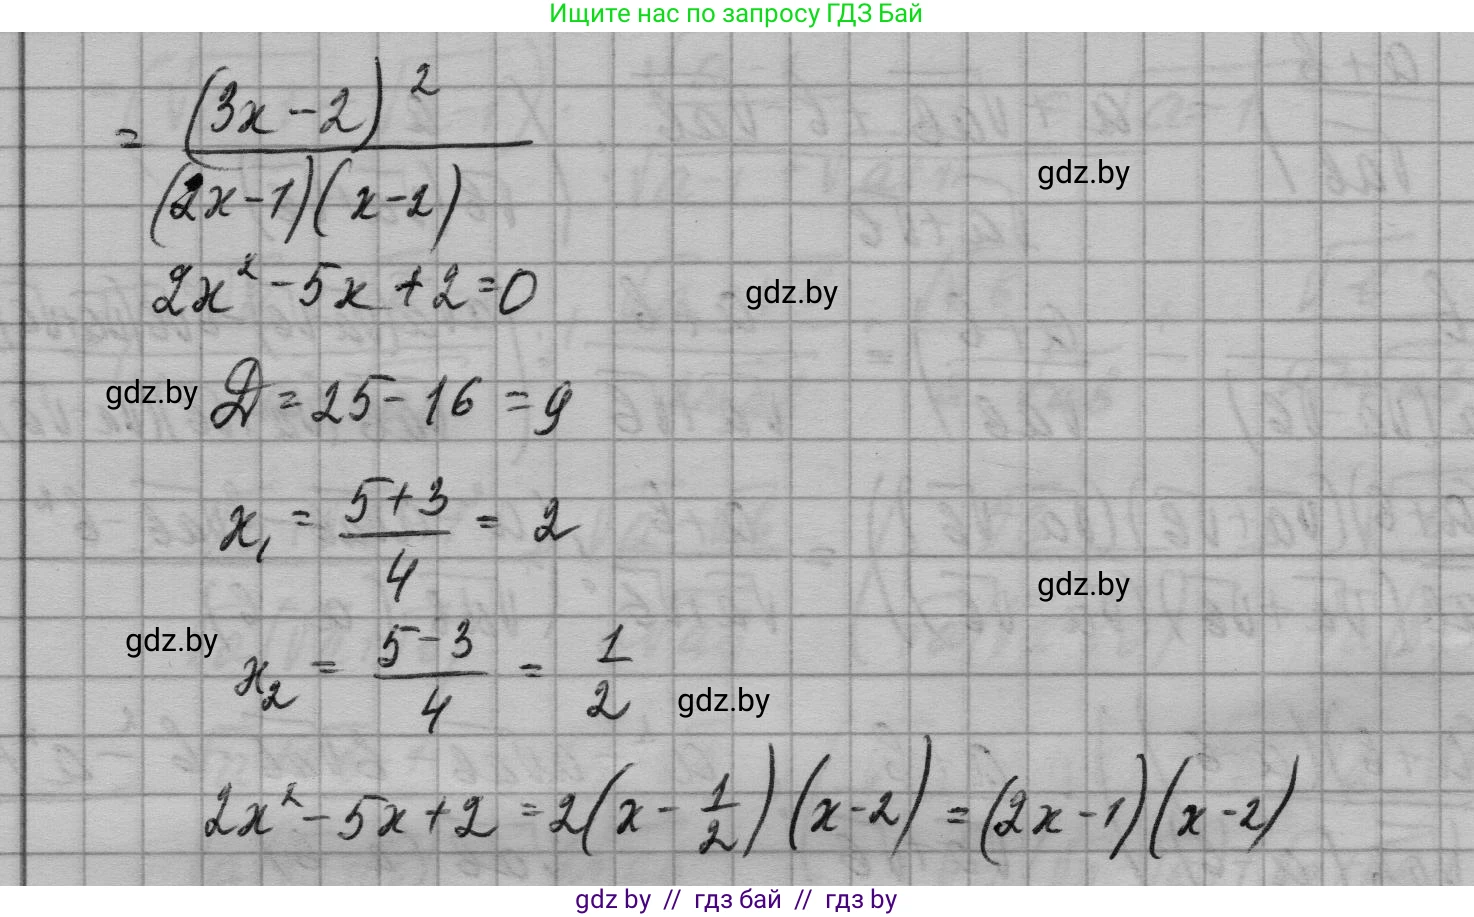 Ищите нас по запросу ГДЗ Бай
= (3x-2)² / (2x-1)(x-2)
gdz.by
2x²-5x+2=0
gdz.by
gdz.by
Д=25-16=9
x₁ = (5+3)/4 = 2
gdz.by
gdz.by
x₂ = (5-3)/4 = 1/2
gdz.by
2x²-5x+2=2(x-1/2)(x-2)=(2x-1)(x-2)
gdz by // гдз бай // гдз by